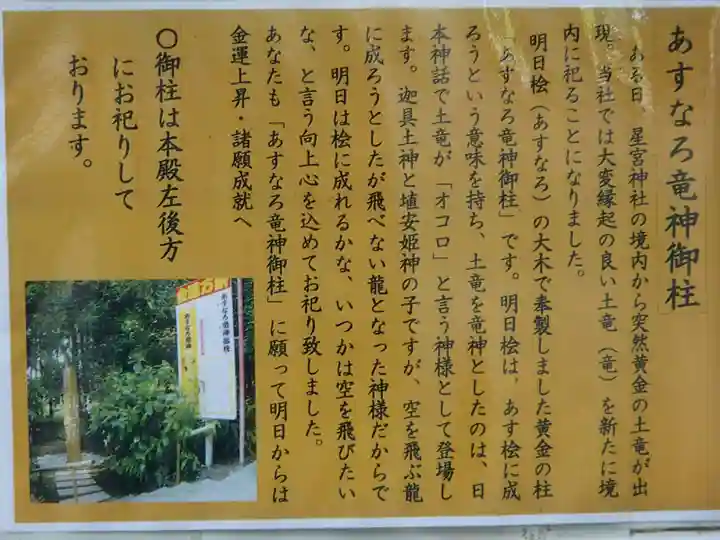 あすなろ竜神御柱
ある日　星宮神社の境内から突然黄金の土竜が出
現。当社では大変縁起の良い土竜（竜）を新たに境
内に祀ることになりました。
明日桧（あすなろ）の大木で奉製しました黄金の柱
「あすなろ竜神御柱」です。明日桧は　あす桧に成
ろうという意味を持ち、土竜を竜神としたのは、日
本神話で土竜が「オコロ」と言う神様として登場し
ます。迦具土神と埴安姫神の子ですが、空を飛ぶ龍
に成ろうとしたが飛べない龍となった神様だからで
す。明日は桧に成れるかな、いつかは空を飛びたい
な、と言う向上心を込めてお祀り致しました。
あなたも「あすなろ竜神御柱」に願って明日からは
金運上昇・諸願成就へ
〇御柱は本殿左後方
にお祀りして
おります。
あすなろ竜神御柱